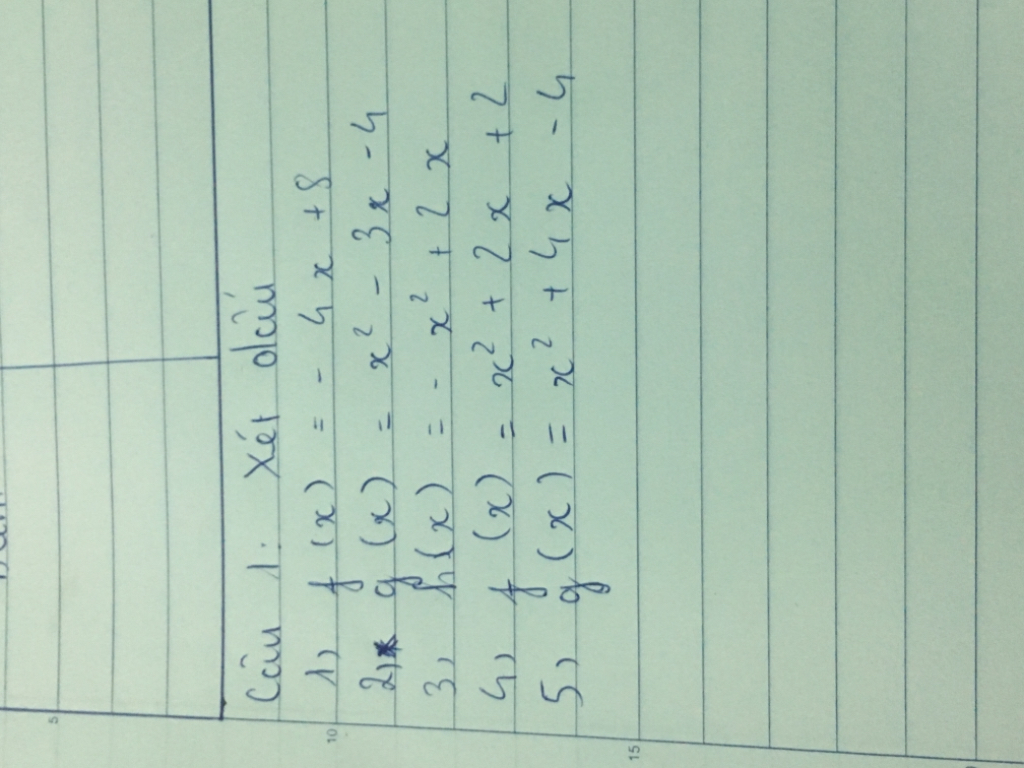 Câu 1: Xét dấu
1) f(x) = - 4x + 8
2) g(x) = x² - 3x - 4
3) h(x) = - x² + 2x
4) f(x) = x² + 2x + 2
5) g(x) = x² + 4x - 4
5
10
15